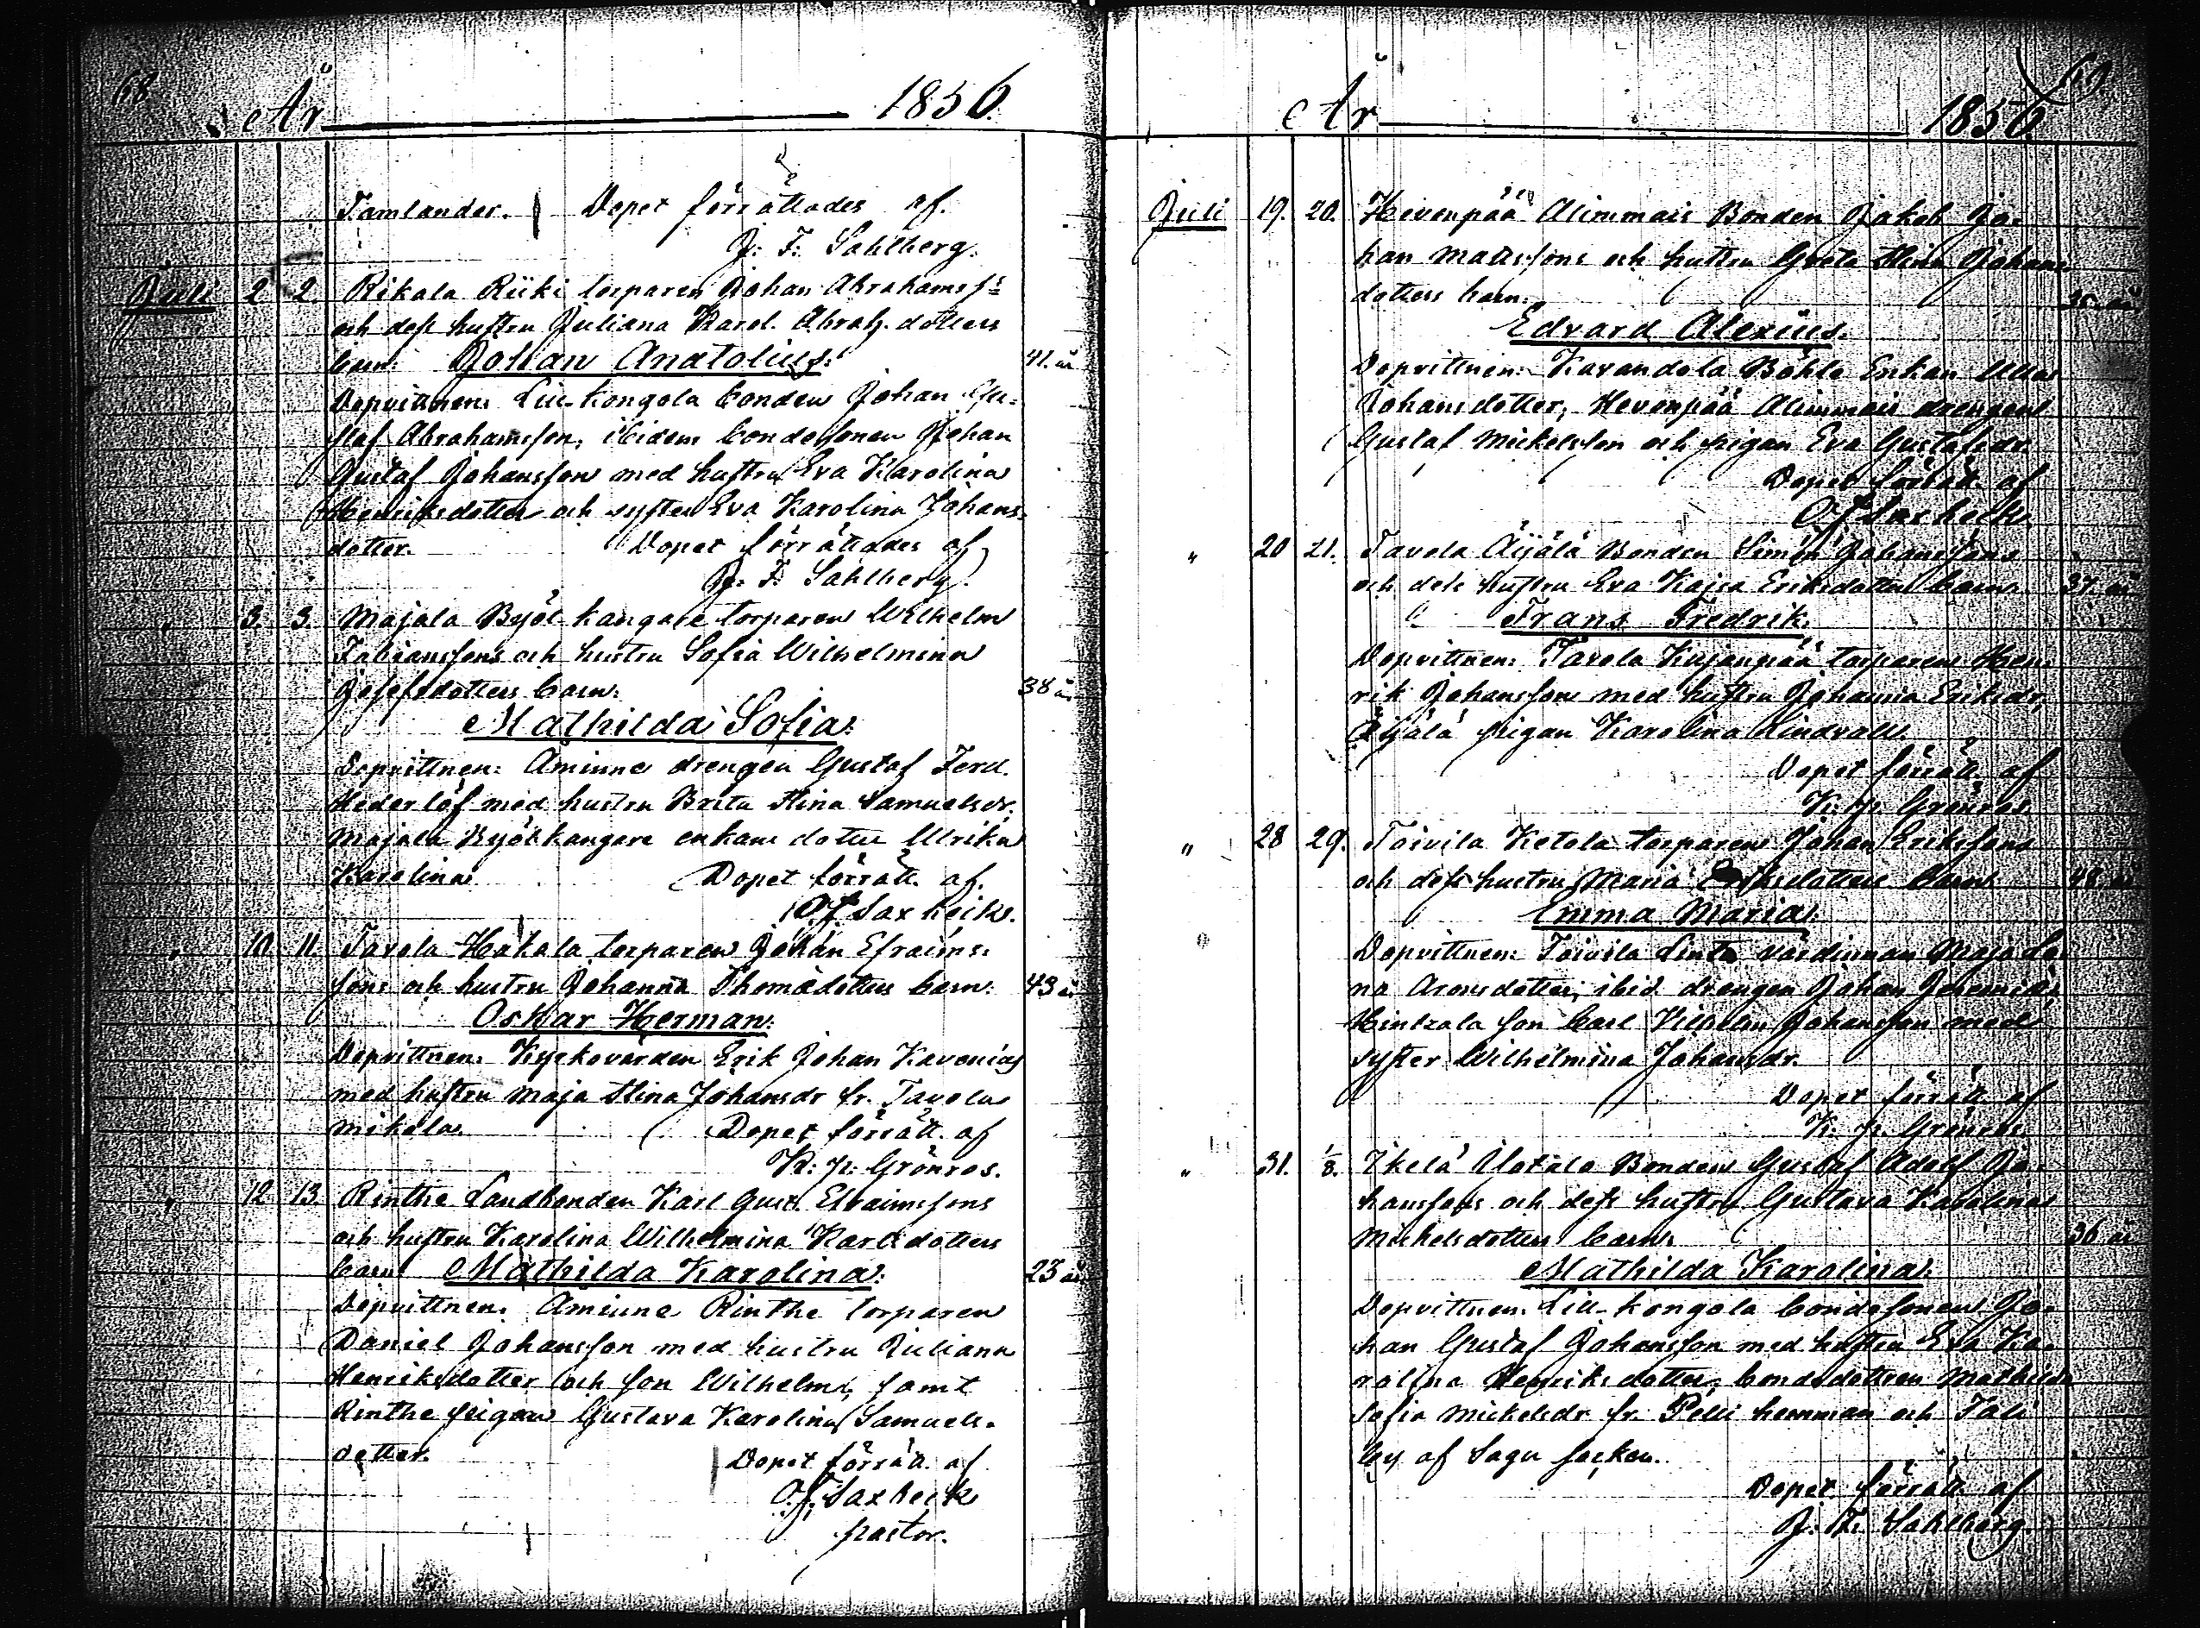 68.
År 1856.
Tamlander. Dopet förrättades af.
J: F: Sahlberg.
Juli 2 2 Rikala Riiki torparen Johan Abrahamss:s
och dess hustru Juliana Karol. Abrah. dotters
barn: Johan Anatolius: 41. år
Dopvittnen: Lill-Kongola bonden Johan Gu-
staf Abrahamsson, ibidem bondesonen Johan
Gustaf Johansson med hustru Eva Karolina
Henriksdotter och syster Eva Karolina Johans-
dotter. Dopet förrättades af
J: F: Sahlberg.
" 3. 3. Majala torparen Wilhelm
Fabianssons och hustru Sofia Wilhelmina
Josefsdotters barn: 38 år
Mathilda Sofia:
Dopvittnen: Aminne drengen Gustaf Ferd.
Hederlöf med hustru Brita Stina Samuelsdr.
Majala enkans dotter Ulrika
Karolina. Dopet förrätt. af.
O.J. Saxbeck.
" 10. 11. Tavola Hakala torparen Johan Efraims-
sons och hustru Johanna Thomædotters barn: 43 år
Oskar Herman:
Dopvittnen: Kyrkovärden Erik Johan Kavenius
med hustru Maja Stina Johansdr fr. Tavola
Mikola. Dopet förrätt. af
K: p: Grönros.
" 12. 13. Rinthe Landbonden Karl Gust. Efraimssons
och hustru Karolina Wilhelmina Karlsdotters
barn Mathilda Karolina: 23 år
Dopvittnen: Aminne Rinthe torparen
Daniel Johansson med hustru Juliana
Henriksdotter och son Wilhelm, samt
Rinthe pigan Gustava Karolina Samuels-
dotter. Dopet förrätt. af
O.J. Saxbeck
pastor.
69.
År 1856
Juli 19. 20. Hevonpää Alimmais Bonden Jakob Jo-
han Mattssons och hustru Greta Stina Johans
dotters barn: 35 år
Edvard Alexius.
Dopvittnen: Karandola Böhle Enkan Ulla
Johansdotter, Hevonpää Alimmais drengen
Gustaf Mickelsson och pigan Eva Gustafsdr
Dopet förrätt. af
O.J. Saxbeck.
" 20 21. Tavola Äijälä Bonden Simon Johanssons
och dess hustru Eva Kajsa Eriksdotters barn. 37. år
Frans Fredrik.
Dopvittnen: Tavola Kujanpää torparen Hen-
rik Johansson med hustru Johanna Eriksdr,
Äijälä pigan Karolina Lindvall.
Dopet förrätt. af
K: p: Grönros
" 28 29. Toivila Ketola torparen Johan Erikssons
och dess hustru Maria Eriksdotters barn. 48 år
Emma Maria:
Dopvittnen: Toivila värdinnan Maja Le-
na Aronsdotter, ibid drengen Johan Jeremias,
Hintzala son Carl Vilhelm Johansson med
syster Wilhelmina Johansdr.
Dopet förrätt. af
K. p. Grönros.
" 31. 1/8. Ikelä Ylotalo Bonden Gustaf Adolf Jo-
hanssons och dess hustru Gustava Karolina
Mickelsdotters barn. 36 år
Mathilda Karolina.
Dopvittnen: Lill-Kongola bondesonen Jo-
han Gustaf Johansson med hustru Eva Ka-
rolina Henriksdotter, bondedottren Mathilda
Sofia Mickelsdr fr. Pelli hemman och Tali
by af Sagu socken.
Dopet förrätt. af
J. F. Sahlberg.